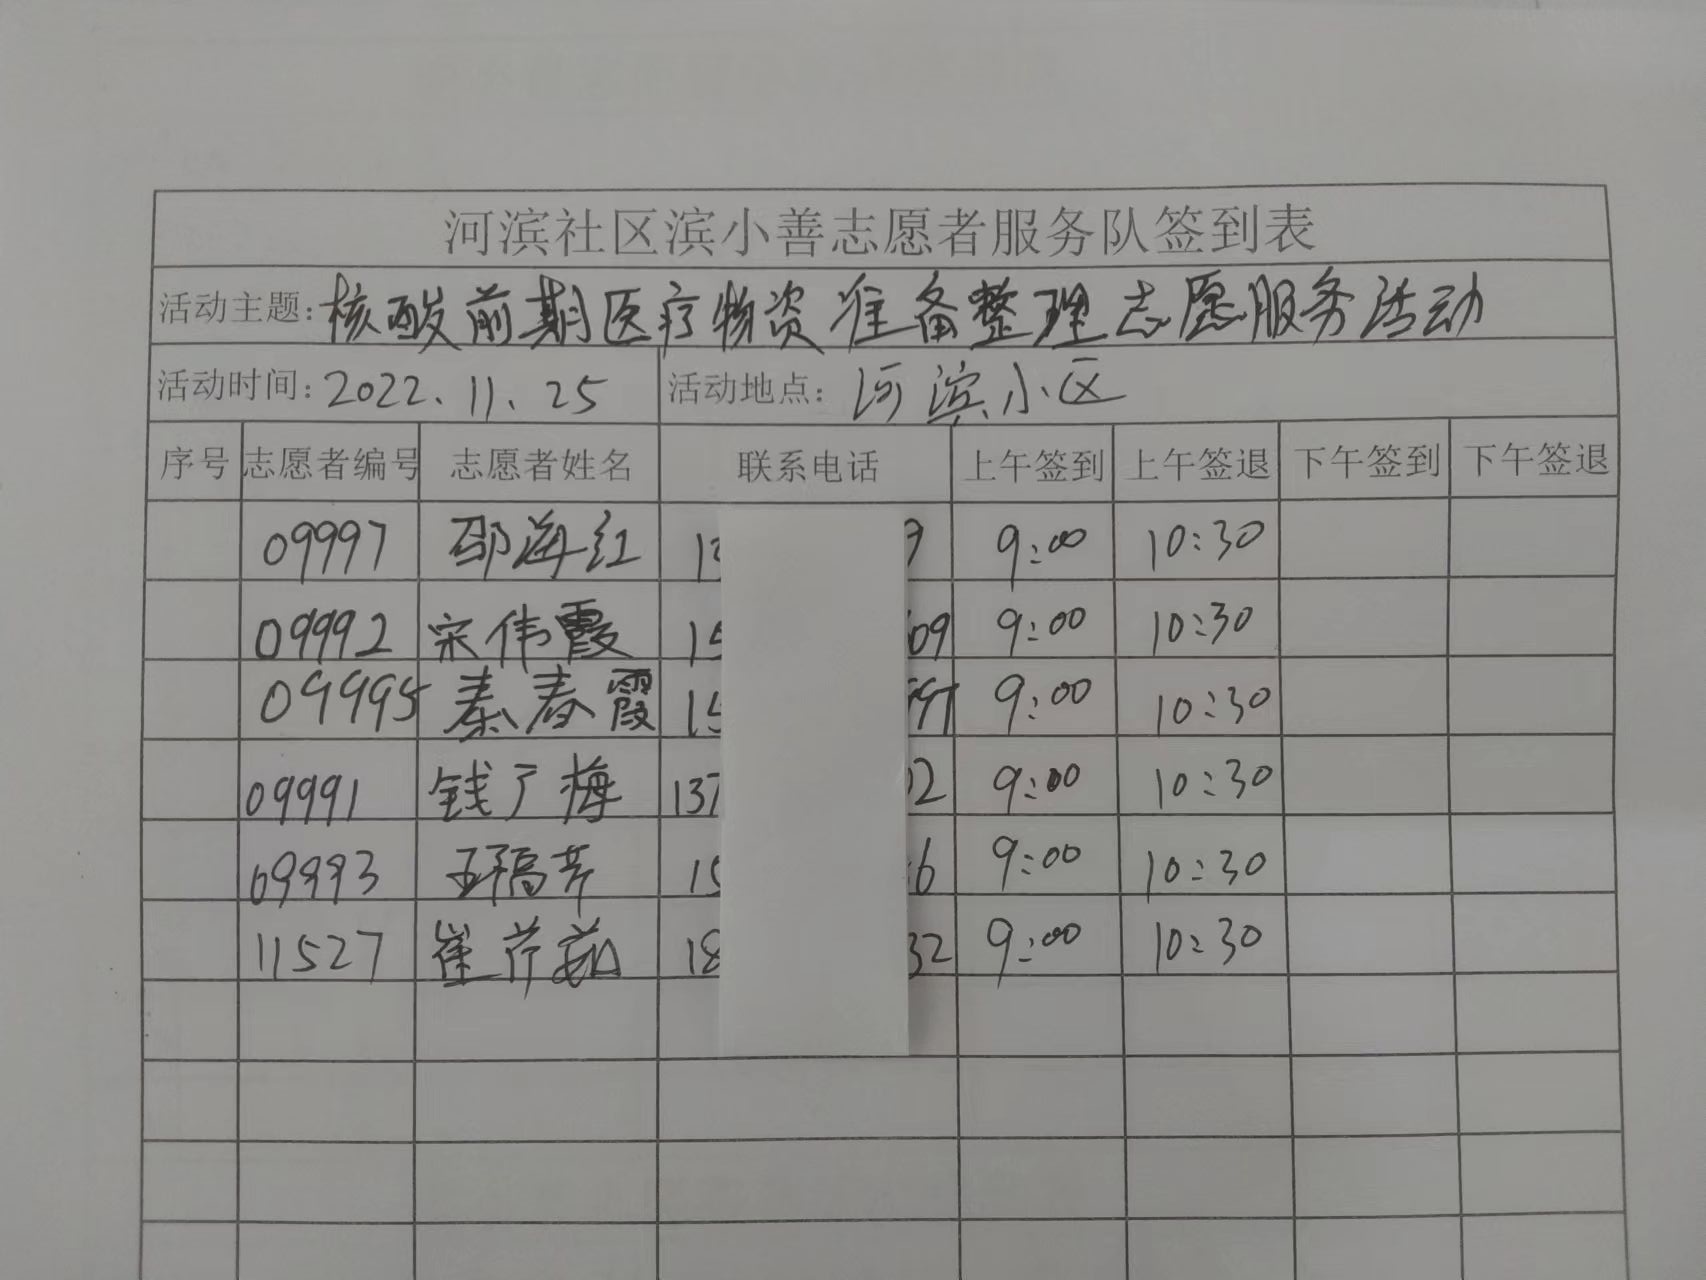 河滨社区滨小善志愿者服务队签到表
活动主题:核酸前期医疗物资准备整理志愿服务活动
活动时间:2022.11.25 活动地点:河滨小区
序号 志愿者编号 志愿者姓名 联系电话 上午签到 上午签退 下午签到 下午签退
09997 邵海红 9 9:00 10:30
09992 宋伟霞 15 09 9:00 10:30
09995 秦春霞 15 9:00 10:30
09991 钱广梅 137 2 9:00 10:30
09993 15 6 9:00 10:30
11527 崔芹 18 32 9:00 10:30